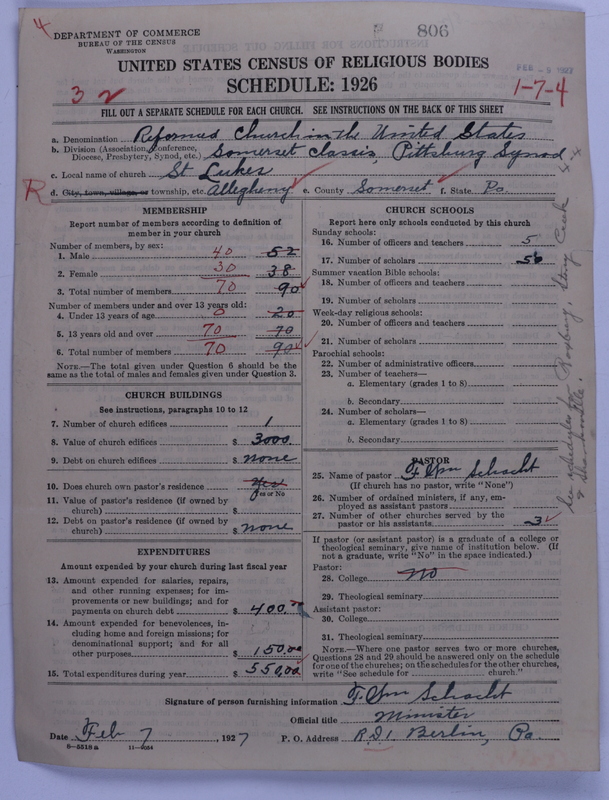 4
DEPARTMENT OF COMMERCE
BUREAU OF THE CENSUS
WASHINGTON
806
UNITED STATES CENSUS OF RELIGIOUS BODIES
SCHEDULE: 1926
FEB - 9 1927
3 2
1-7-4
FILL OUT A SEPARATE SCHEDULE FOR EACH CHURCH. SEE INSTRUCTIONS ON THE BACK OF THIS SHEET
a. Denomination Reformed Church in the United States
b. Division (Association, Conference, Diocese, Presbytery, Synod, etc.) Somerset Classis, Pittsburg Synod
c. Local name of church St Lukes
R d. City, town, village, or township, etc. Allegheny e. County Somerset f. State Pa.
MEMBERSHIP
Report number of members according to definition of member in your church
Number of members, by sex:
1. Male 40 52
2. Female 30 38
3. Total number of members 70 90
Number of members under and over 13 years old:
4. Under 13 years of age 0 20
5. 13 years old and over 70 70
6. Total number of members 70 90
NOTE.—The total given under Question 6 should be the same as the total of males and females given under Question 3.
CHURCH BUILDINGS
See instructions, paragraphs 10 to 12
7. Number of church edifices 1
8. Value of church edifices $ 3000.
9. Debt on church edifices $ none
10. Does church own pastor's residence? Yes
Yes or No
11. Value of pastor's residence (if owned by church) $
12. Debt on pastor's residence (if owned by church) $ none
EXPENDITURES
Amount expended by your church during last fiscal year
13. Amount expended for salaries, repairs, and other running expenses; for improvements or new buildings; and for payments on church debt $ 400.00
14. Amount expended for benevolences, including home and foreign missions; for denominational support; and for all other purposes $ 150.00
15. Total expenditures during year $ 550.00
CHURCH SCHOOLS
Report here only schools conducted by this church
Sunday schools:
16. Number of officers and teachers 5
17. Number of scholars 50
Summer vacation Bible schools:
18. Number of officers and teachers
19. Number of scholars
Week-day religious schools:
20. Number of officers and teachers
21. Number of scholars
Parochial schools:
22. Number of administrative officers
23. Number of teachers—
a. Elementary (grades 1 to 8)
b. Secondary
24. Number of scholars—
a. Elementary (grades 1 to 8)
b. Secondary
PASTOR
25. Name of pastor F. Wm Schacht
(If church has no pastor, write "None")
26. Number of ordained ministers, if any, employed as assistant pastors
27. Number of other churches served by the pastor or his assistants 3
If pastor (or assistant pastor) is a graduate of a college or theological seminary, give name of institution below. (If not a graduate, write "No" in the space indicated.)
Pastor:
28. College No
29. Theological seminary
Assistant pastor:
30. College
31. Theological seminary
NOTE.—Where one pastor serves two or more churches, Questions 28 and 29 should be answered only on the schedule for one of the churches; on the schedules for the other churches, write "See schedule for church."
See schedules for Roxbury, Stony Creek
Signature of person furnishing information F. Wm Schacht
Official title Minister
Date Feb 7, 1927 P. O. Address R.D.1. Berlin, Pa.
8-5518a 11-9054